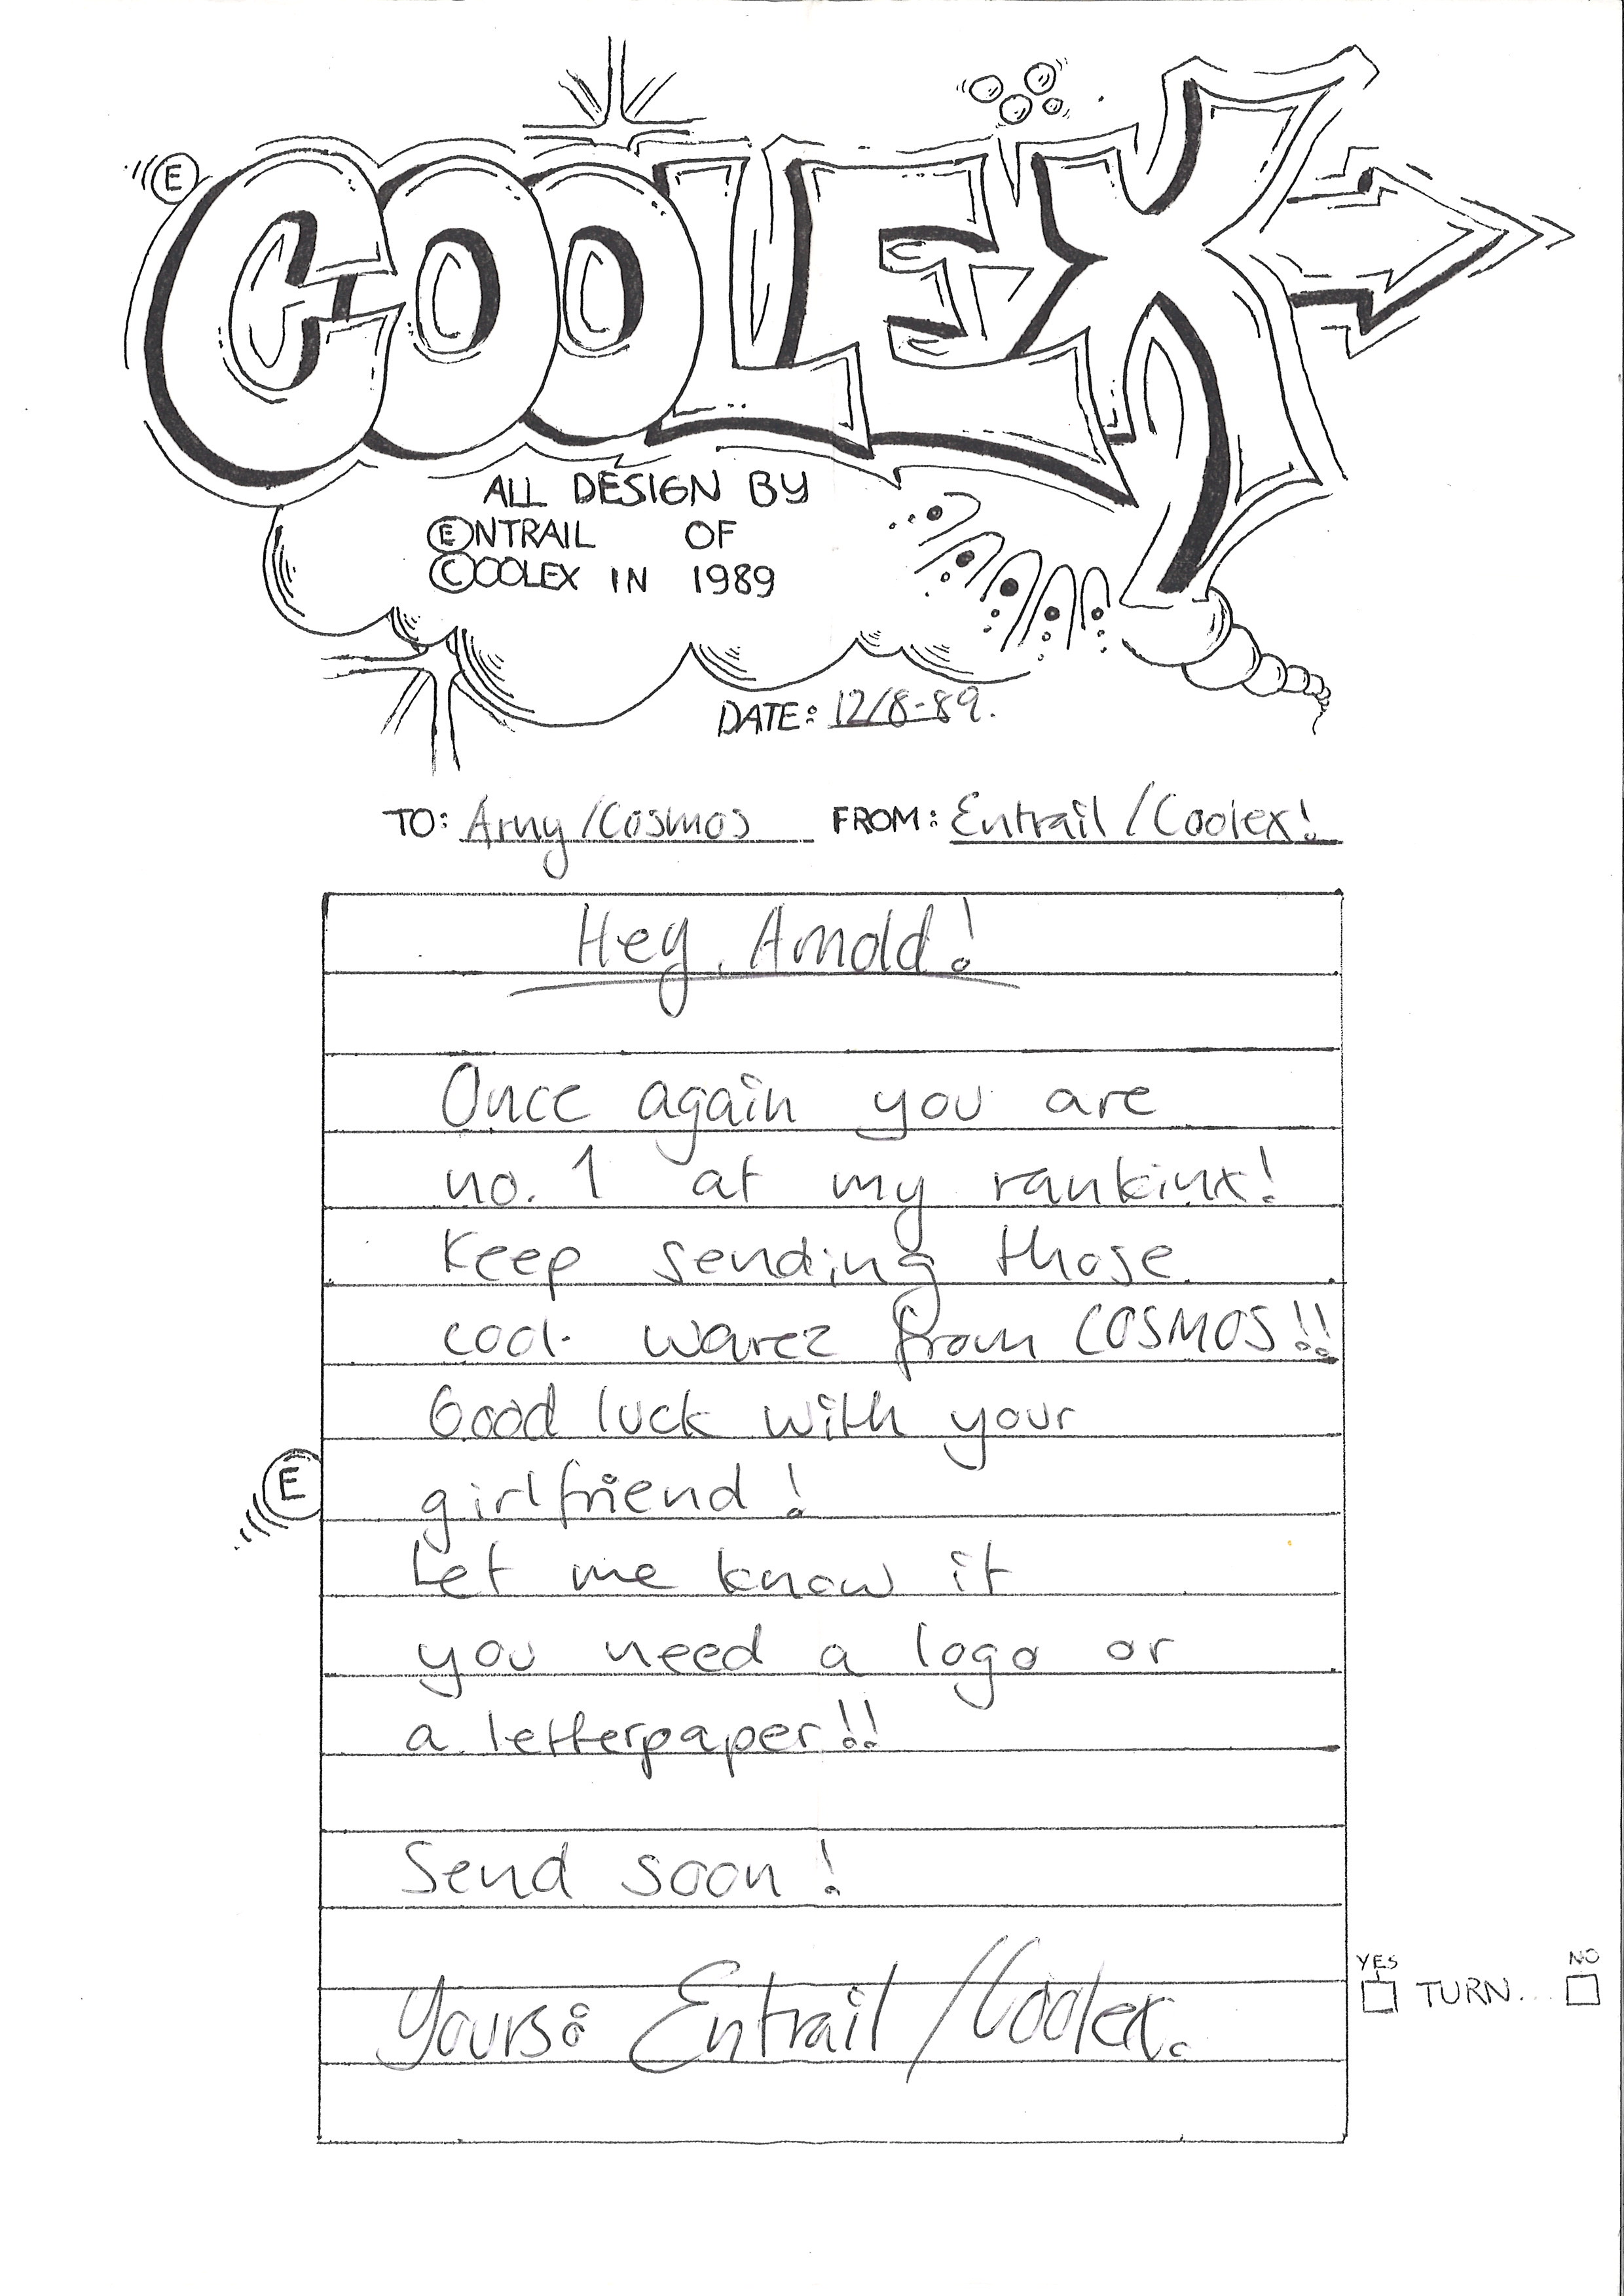 E
COOLEX
ALL DESIGN BY
ENTRAIL OF
COOLEX IN 1989
DATE: 12/8-89.
TO: Arny/Cosmos FROM: Entrail/Coolex!
Hey, Arnold!
Once again you are
no. 1 at my rankinx!
Keep sending those
cool warez from COSMOS!!
Good luck with your
E
girlfriend!
Let me know if
you need a logo or
a letterpaper!!
Send soon!
YES NO
TURN...
Yours: Entrail/Coolex.